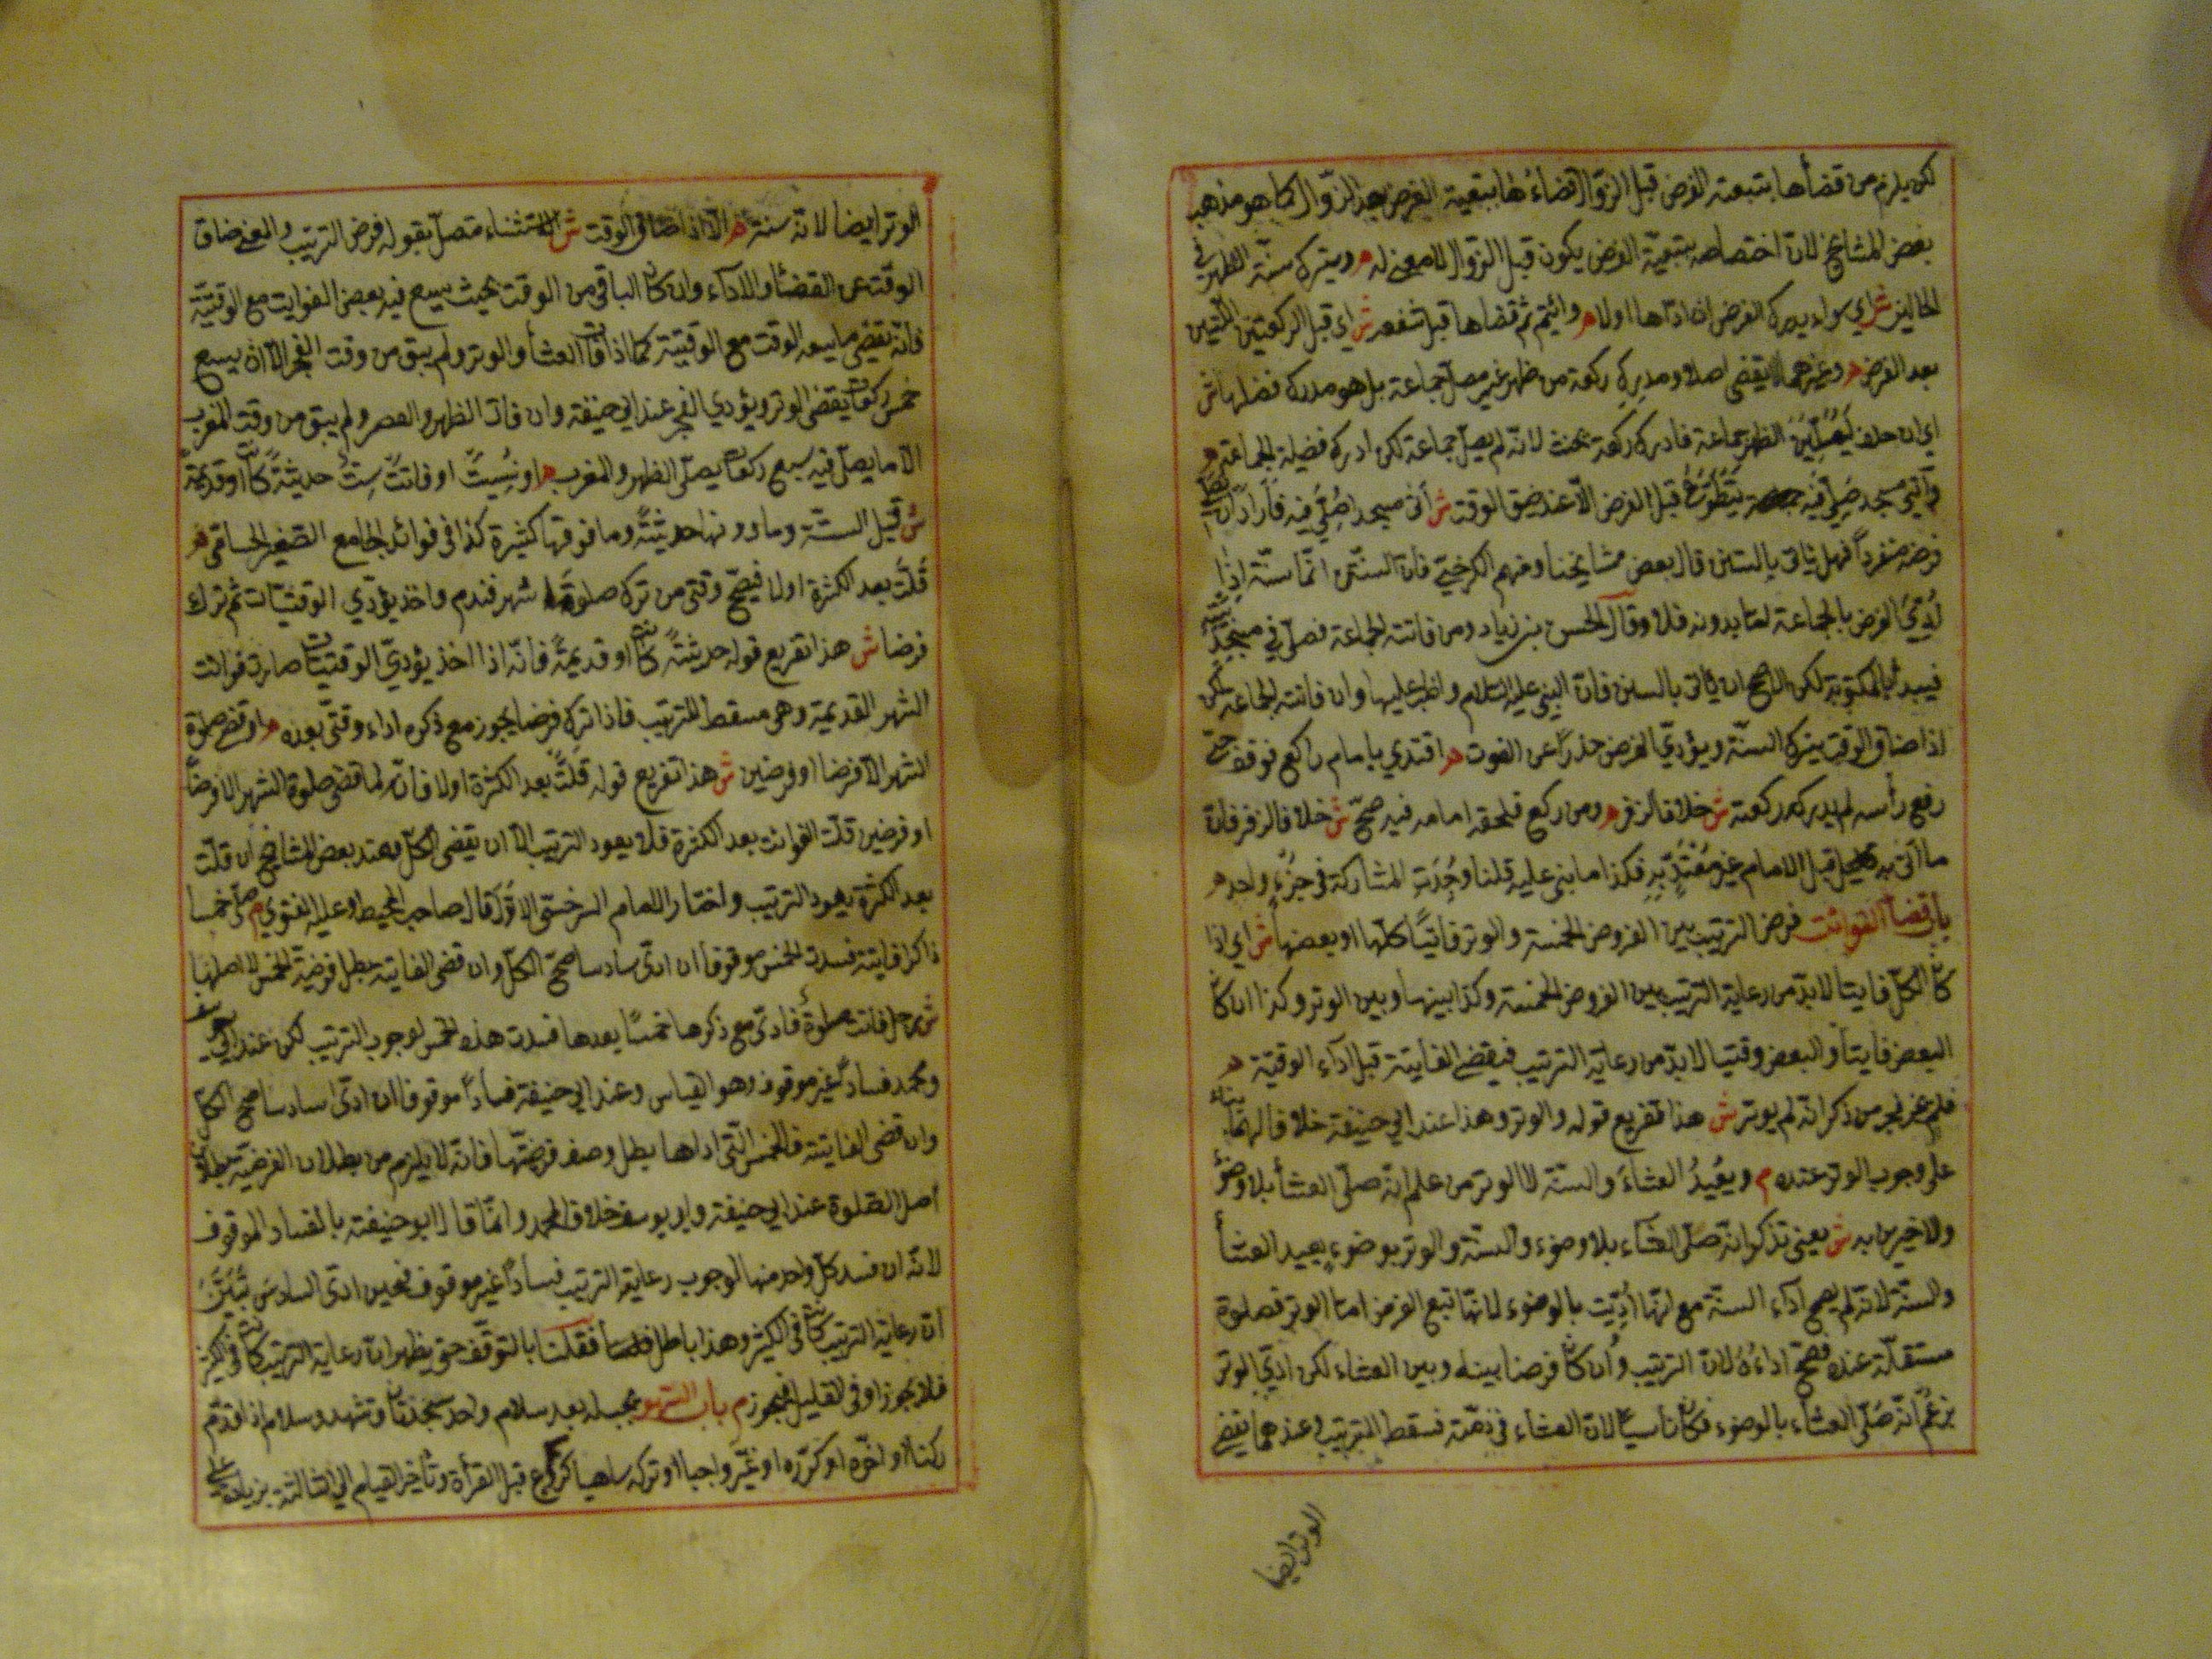 لكن يلزم من قضأها بتبعية الفرض قبل الزوال قضاءُها بتبعية الفرض بعد الزّوال كما هو مذهب
بعض المشائخ لانّ اختصاصه بتبعيّة الفرض يكون قبل الزّوال لا معنى له م ويترك سنّة الظهر في
الحالين ش اي سواء يدرك الفرض ان ادّاها اولا م وائتم ثم قضاها قبل شفعه ش اى قبل الركعتين اللتين
بعد الفرض م وغيرهما لا يقضى اصلا ومدرك ركعة من ظهر غير مصلّ جماعة بل هو مدرك فضلها ش
اي ان حلف ليُصلّينّ الظهر جماعة فادرك ركعة يحنث لانّه لم يصلّ جماعة لكن ادرك فضيلة الجماعة م
وآتي مسجد صُلّي فيه يتطوّع قبل الفرض الّا عند ضيق الوقت ش أتى مسجدا صُلّي فيه فأراد ان يصلي
فرضه منفرداً فهل يأتى بالسنن قال بعض مشايخنا ومنهم الكرخيّ لا فانّ السنّة انّما سنّة اذا
أُدّيَ الفرض بالجماعة امّا بدونه فلا وقال الحسن بن زياد ومن فاتته الجماعة فصلّى في مسجد بيته
فيبدأ بالمكتوبة لكن الاصح ان يأتى بالسنن فانّ النبي عليه السّلام واظب عليها وان فاتته الجماعة لكن
اذا ضاق الوقت يترك السنّة ويؤدّي الفرض حذراً عن الفوت م اقتدي بامام راكع فوقف حتى
رفع رأسه لم يدرك ركعته ش خلافا لزفر م ومن ركع فلحقه امامه فيه صحّ ش خلافا لزفر فانّ
ما اتى به قبل الامام غير مُعْتَدٍّ بِهِ فكذا ما بنى عليه قلنا وُجِدَتِ المشاركة في جزءٍ واحد م
باب قضأ الفوائت فرض الترتيب بين الفروض الخمسة والوتر فائتًا كلّها او بعضها ش اي اذا
كان الكلّ فايتا لا بدّ من رعاية الترتيب بين الفروض الخمسة وكذا بينها وبين الوتر وكذا ان كان
البعض فايتاً والبعض وقتيا لا بدّ من رعاية الترتيب فيقضى الفايتة قبل آداء الوقتيّة م
فلم يجز فجر من ذكر انّه لم يوتر ش هذا تفريع قوله والوتر وهذا عند ابي حنيفة خلافا لهما بناء
على وجوب الوتر عنده م ويُعيدُ العشاءَ والسنّة لا الوتر من علم انّه صلّى العشأ بلا وضوء
والاخيرين به ش يعنى تذكر انّه صلّى العشاء بلا وضوء والسنّة والوتر بوضوءٍ يعيد العشأ
والسنّة لانّه لم يصح آداء السنّة مع انّها أُدّيت بالوضوء لانّها تبع الفرض امّا الوتر فصلوة
مستقلّة عنده فصحّ اداءُهُ لانّ الترتيب وان كان فرضا بينه وبين العشاء لكن ادّي الوتر
بزعمٍ انّه صلّى العشاء بالوضوء فكان ناسيا لانّ العشاء في ذمّته فسقط الترتيب وعندهما يقضى
الوتر ايضا
الوتر ايضا لانّه سنة م الّا اذا ضاق الوقت ش الاستثناء متصل بقوله فرض الترتيب والمعنى ضاق
الوقت عن القضأ والاداء وان كان الباقي من الوقت بحيث يسع فيه بعض الفوايت مع الوقتيّة
فانّه يقضى ما يسعه الوقت مع الوقتية كما اذا فات العشأ والوتر ولم يبق من وقت الفجر الّا ان يسع
خمس ركعات يقضى الوتر ويؤدي الفجر عند ابي حنيفة وان فات الظهر والعصر ولم يبق من وقت المغرب
الّا ما يصلّ فيه سبع ركعات يصلّى الظهر والمغرب م او نُسِيتْ او فاتتْ ستٌّ حديثةً كان او قديمةً
ش قيل الستّة وما دونها حديثةً وما فوقها كثيرة كذا في فوائد الجامع الصّغير الحسامى م
قلّت بعد الكثرة اولا فيصحّ وقتى من ترك صلوة شهر فندم واخذ يؤدّي الوقتيّات ثم ترك
فرضا ش هذا تفريع قوله حديثةً كان او قديمةً فانّه اذا اخذ يؤدّي الوقتيّات صارت فوائت
الشهر القديمة وهى مسقط للترتيب فاذا ترك فرضا يجوز مع ذكره اداء وقتىّ بعده م او قضى صلوة
الشهر الّا فرضا او فرضين ش هذا تفريع قوله قلّت بعد الكثرة اولا فانّه لمّا قضى صلوة الشهر الّا فرضًا
او فرضين قلّت الفوائت بعد الكثرة فلا يعود الترتيب الّا ان يقضى الكلّ وعند بعض المشائخ ان قلّت
بعد الكثرة يعود الترتيب واختار الامام السرخسيّ الاوّل قال صاحب المحيط وعليه الفتوى م صلّى خمسا
ذاكرا فايتة فسدت الخمس موقوفا ان ادّى سادسا صحّ الكلّ وان قضى الفايتة بطل فرضيّة الخمس لا اصلها
ش رجل فاتته صلوةٌ فادّى مع ذكرها خمسًا بعدها فسدت هذه الخمس لوجوب الترتيب لكن عند ابي يوسف
ومحمد فسادًا غير موقوف وهو القياس وعند ابي حنيفة فساداً موقوفا ان ادّى سادسا صحّ الكلّ
وان قضى الفايتة فالخمس الّتى اداها بطل وصف فرضيّتها فانّه لا يلزم من بطلان الفرضيّة بطلان
اصل الصّلوة عند ابي حنيفة وابو يوسف خلافا لمحمد وانّما قال ابو حنيفة بالفساد الموقوف
لانّه ان فسد كلّ واحد منها لوجوب رعاية الترتيب فسادًا غير موقوف فحين ادّى السادسَ تبيّن
انّ رعاية الترتيب كانت في الكثير وهذا باطل فقلنا بالتوقّف حتى يظهر انّ رعاية الترتيب كانت في الكثير
فلا يجوز او في القليل فيجوز م باب السهو يجب له بعد سلام واحد سجدتان وتشهد وسلام اذا قدّم
ركنا او اخّره او كرّره او غيّر واجبا او تركه ساهيا كركوع قبل القرأة وتأخير القيام الي الثالثة بزيادة على